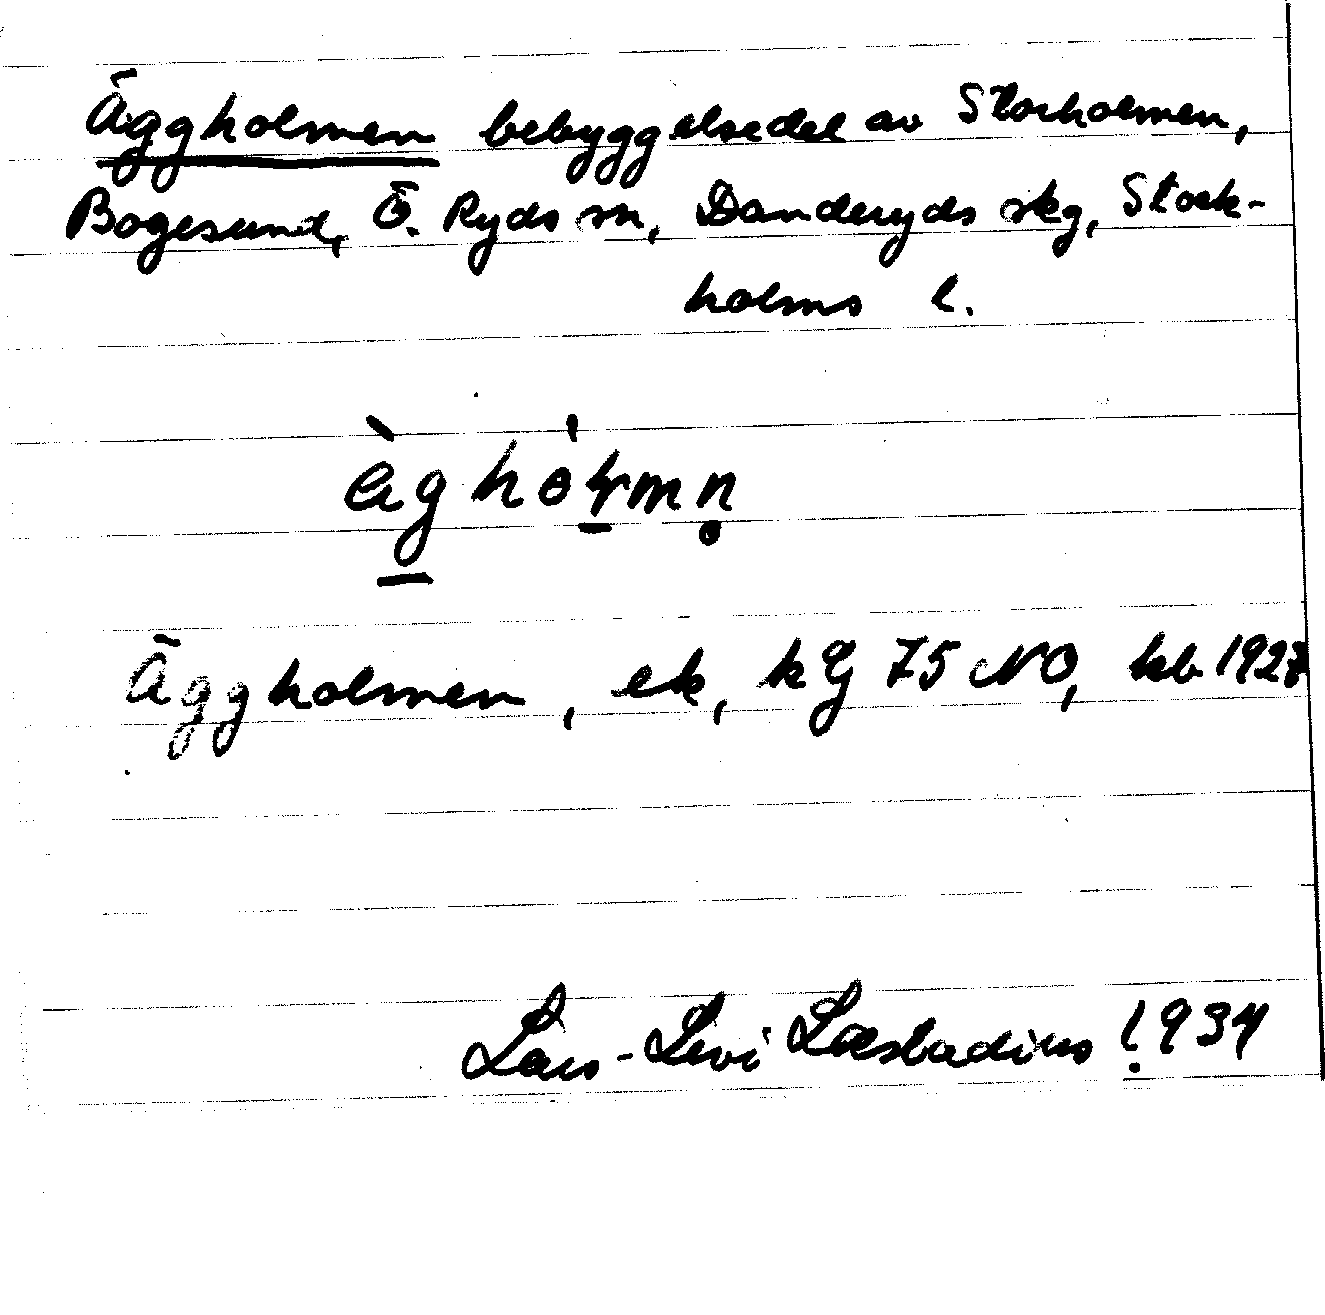 Äggholmen bebyggelsedel av Storholmen,
Bogesund, Ö. Ryds sn, Danderyds skg, Stock-
holms l.
Äggholmen, ek, kG 75 NO, kb 1927
Lars-Levi Læstadius ! 934